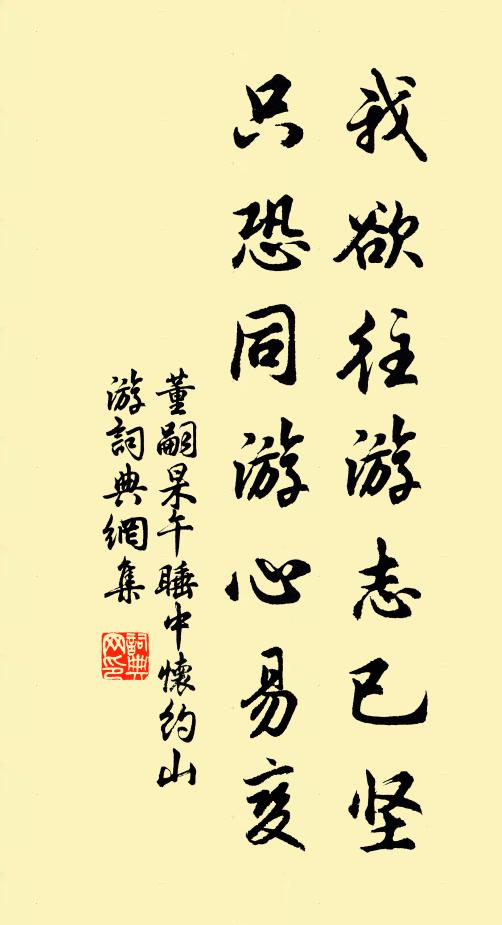 我欲往游志已坚
只恐同游心易变
董嗣杲午睡中懷約山
游詞典網集
詞典
网印